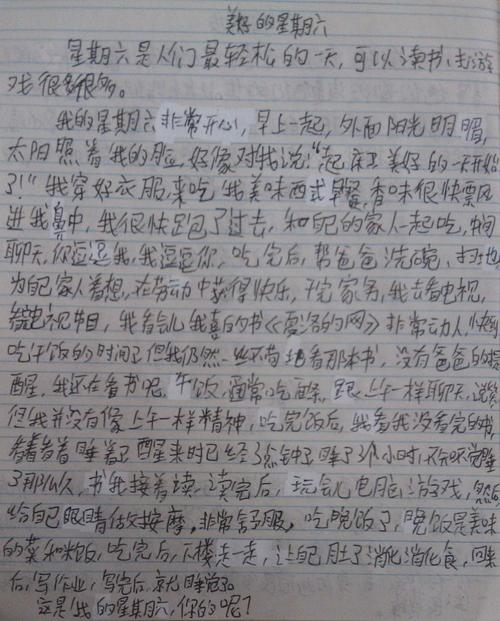 美好的星期六
星期六是人们最轻松的一天,可以读书、去游
戏很多很多。
我的星期六非常开心,早上一起,外面阳光明媚,
太阳照着我的脸,好像对我说:“起床了!美好的一天开始
了!”我穿好衣服,来吃我美味西式早餐,香味很快飘
进我鼻中,我很快跑了过去,和自己的家人一起吃,中间
聊天,你逗逗我,我逗逗你,吃完后,帮爸爸洗碗、扫地
为自己家人着想,在劳动中获得快乐,干完家务,我去看电视,
电视节目,我看会儿我喜的书《夏洛的网》非常动人,快到
吃午饭的时间了但我仍然一丝不苟地看那本书,没有爸爸的提
醒,我还在看书呢。午饭,通常吃面条,跟上午一样聊天,说笑
但我并没有像上午一样精神,吃完饭后,我看我没看完的书
看着看着睡着了醒来时已经3点钟了睡了3个小时,不知不觉睡
了那么久,书我接着读,读完后,玩会儿电脑游戏,然后
给自己眼睛做按摩,非常舒服,吃晚饭了,晚饭是美味
的菜和米饭,吃完后,下楼走一走,让自己肚子消化消化食,回来
后,写作业,写完后,就睡觉了。
这是我的星期六,你的呢?